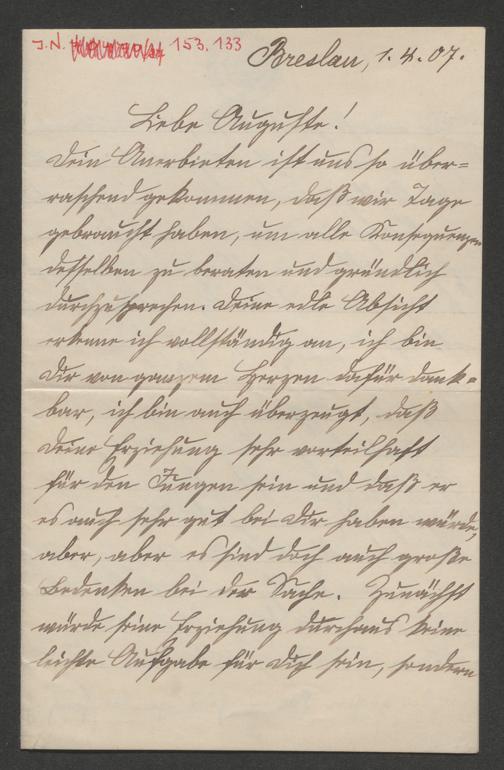 J. N. 153.133
Breslau, 1.4.07.
Liebe Auguste!
Dein Anerbieten ist uns so über=
raschend gekommen, daß wir Tage
gebraucht haben, um alle Konsequenzen
desselben zu beraten und gründlich
durchzusprechen. Deine edle Absicht
erkenne ich vollständig an, ich bin
Dir von ganzem Herzen dafür dank=
bar, ich bin auch überzeugt, daß
Deine Erziehung sehr vorteilhaft
für den Jungen sein und daß er
es auch sehr gut bei Dir haben würde,
aber, aber es sind doch auch große
Bedenken bei der Sache. Zunächst
würde seine Erziehung durchaus keine
leichte Aufgabe für Dich sein, sondern